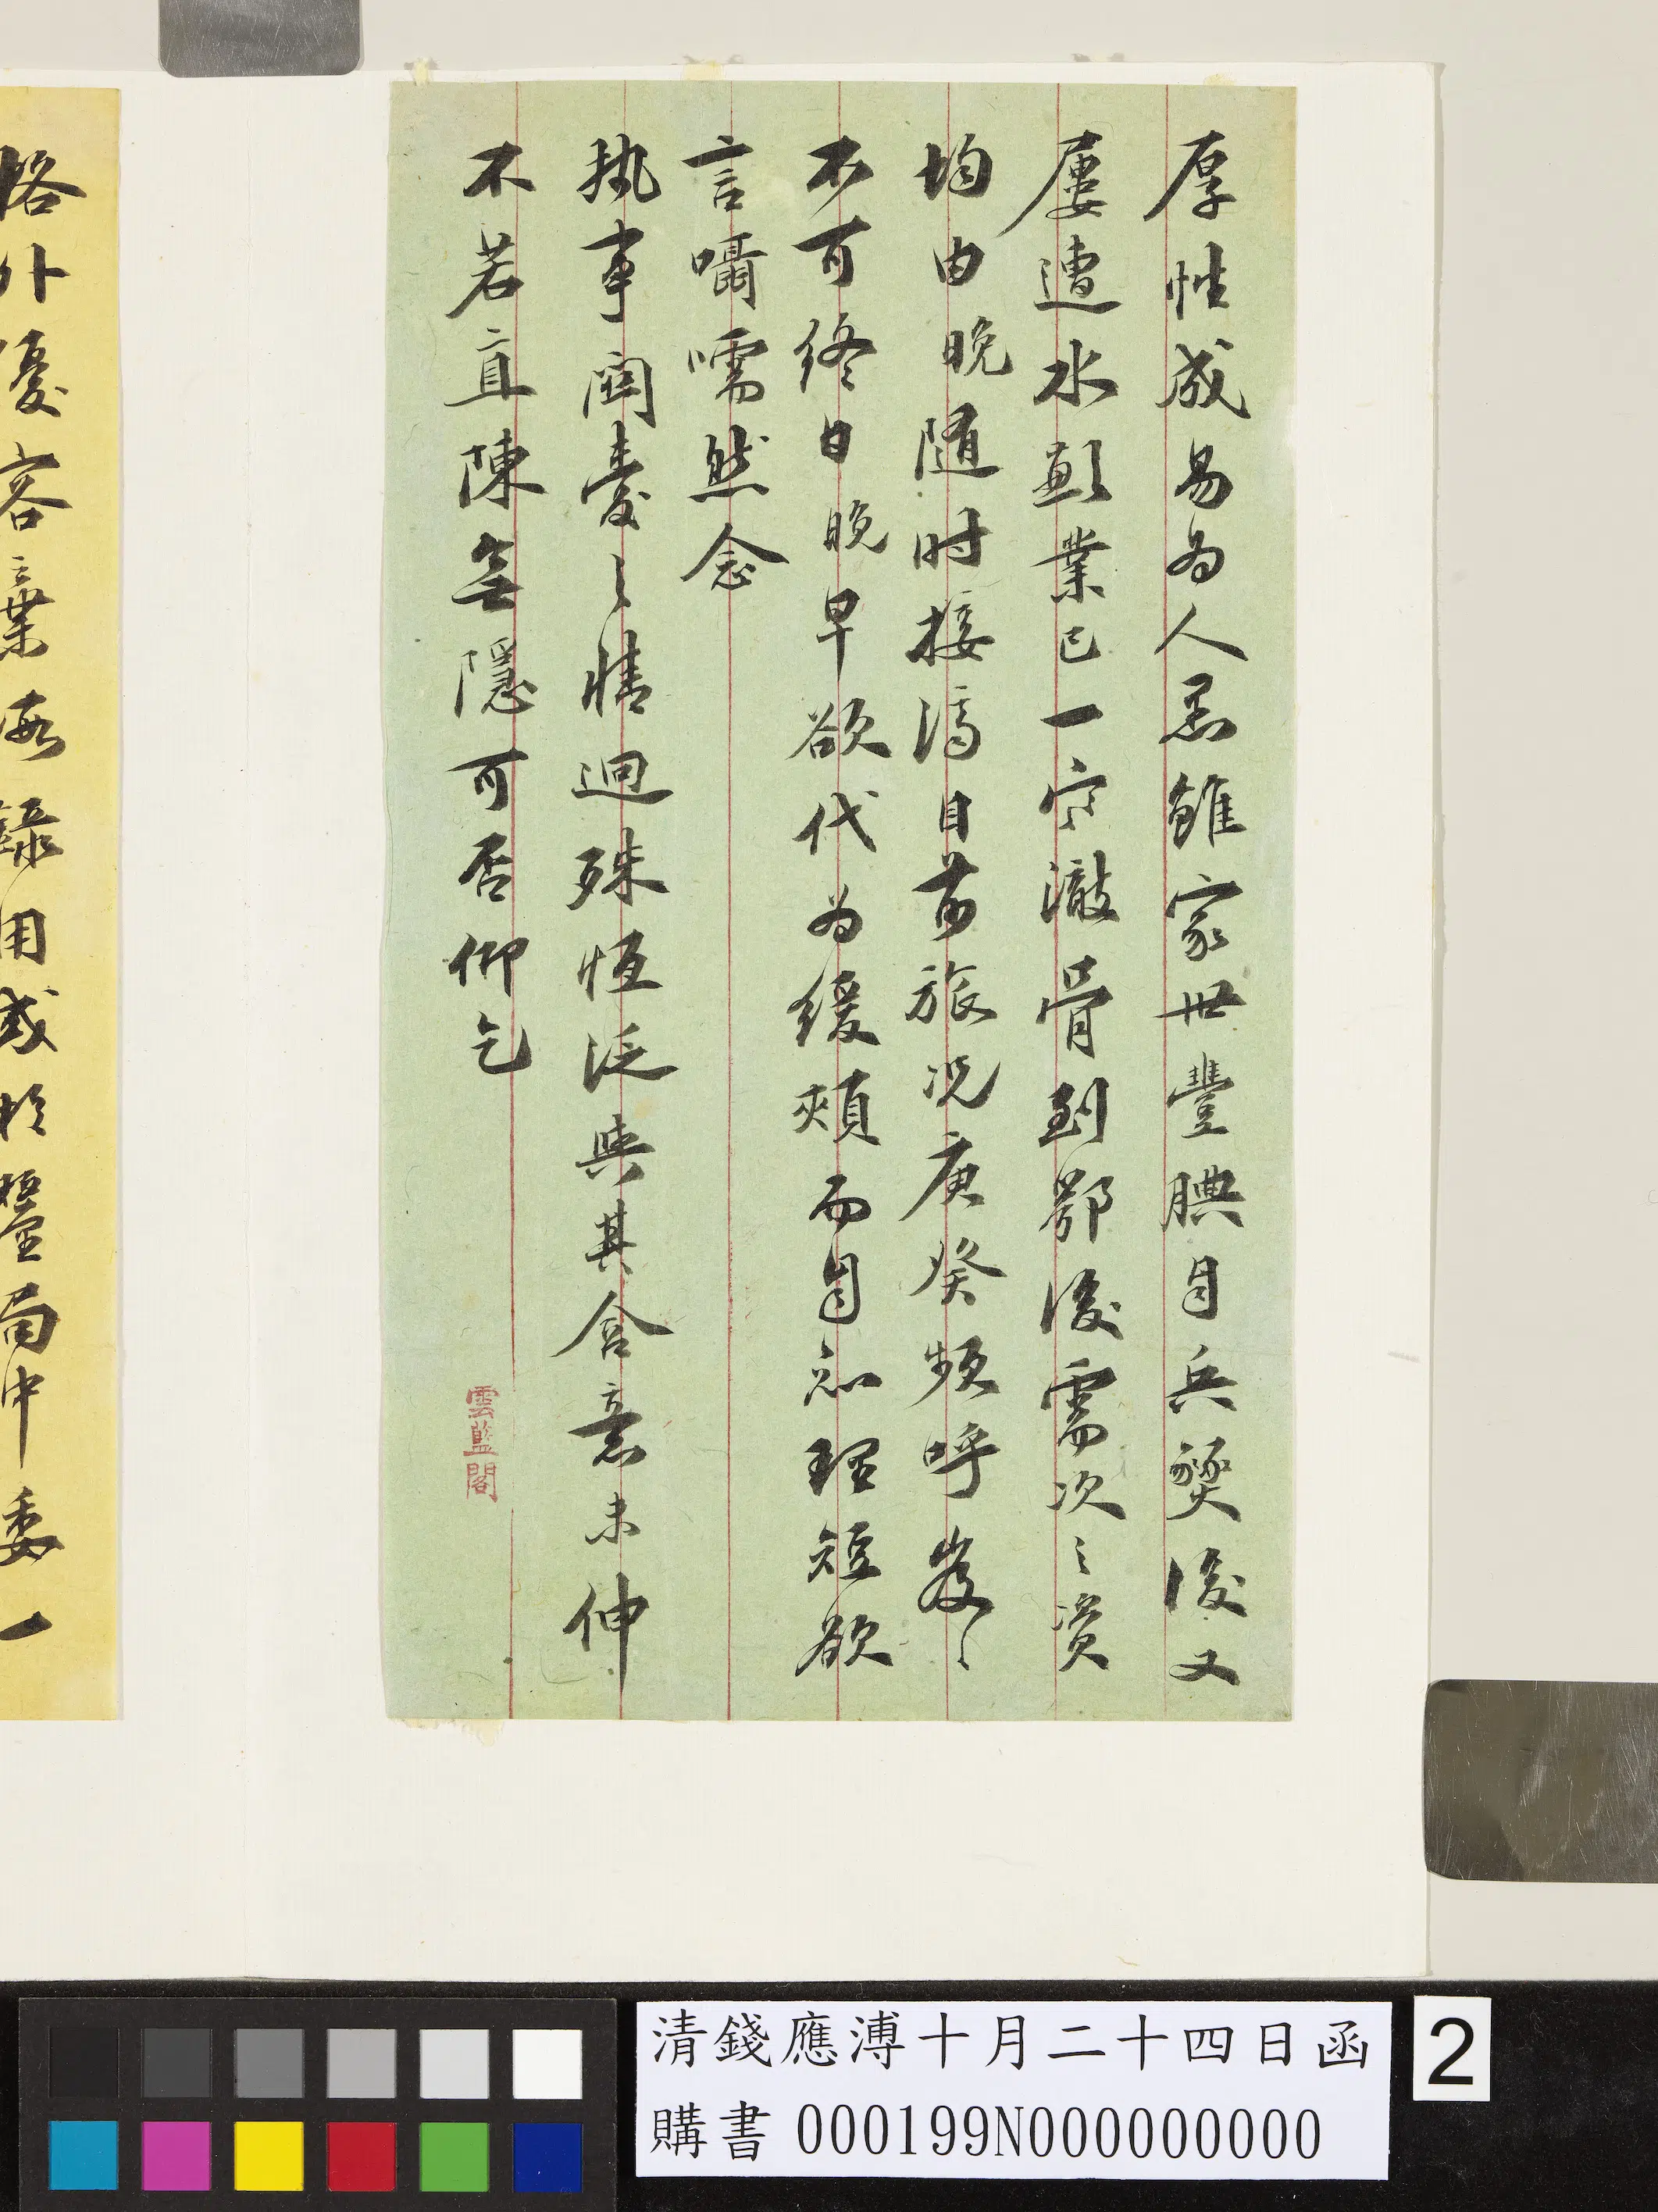 厚性成易為人忌雖家世豐腆自兵燹後又
屢遭水虧業已一窮澈骨到鄂後需次之資
均由晚随时接濟目前旅况庚癸頻呼岌〻
不可終日晚早欲代為緩頰而自知理短欲
言囁嚅然念
執事関愛之情迥殊恒泛與其含意未伸
不若直陳無隱可否仰乞
雲藍閣
格外優容棄瑕錄用或於釐局中委一
清錢應溥十月二十四日函
購書 000199N000000000
2